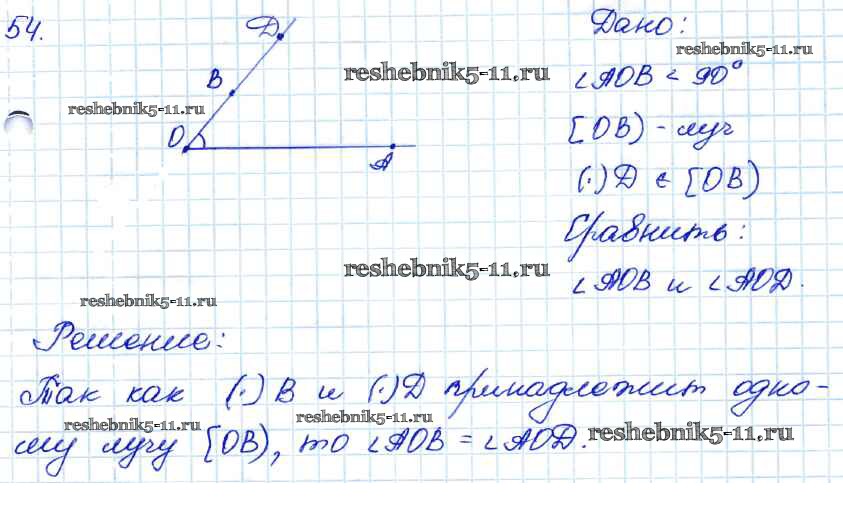 54.
D
B
O
A
Дано:
reshebnik5-11.ru
∠AOB < 90°
reshebnik5-11.ru
reshebnik5-11.ru
[OB) - луч
(·) D ∈ [OB)
Сравнить:
reshebnik5-11.ru
∠AOB и ∠AOD.
reshebnik5-11.ru
Решение:
Так как (·) B и (·) D принадлежит одно-
reshebnik5-11.ru
reshebnik5-11.ru
му лучу [OB), то ∠AOB = ∠AOD.
reshebnik5-11.ru